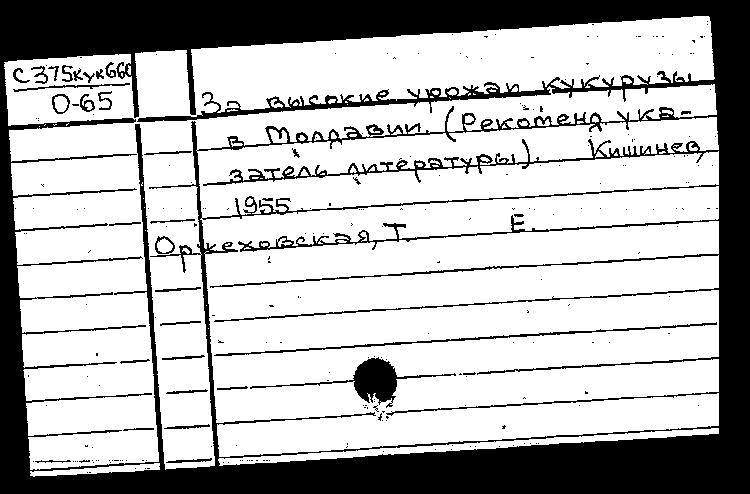 С375кук660
О-65
За высокие урожаи кукурузы
в Молдавии. (Рекоменд. ука-
затель литературы). Кишинев,
1955.
Оржеховская, Т. Е.